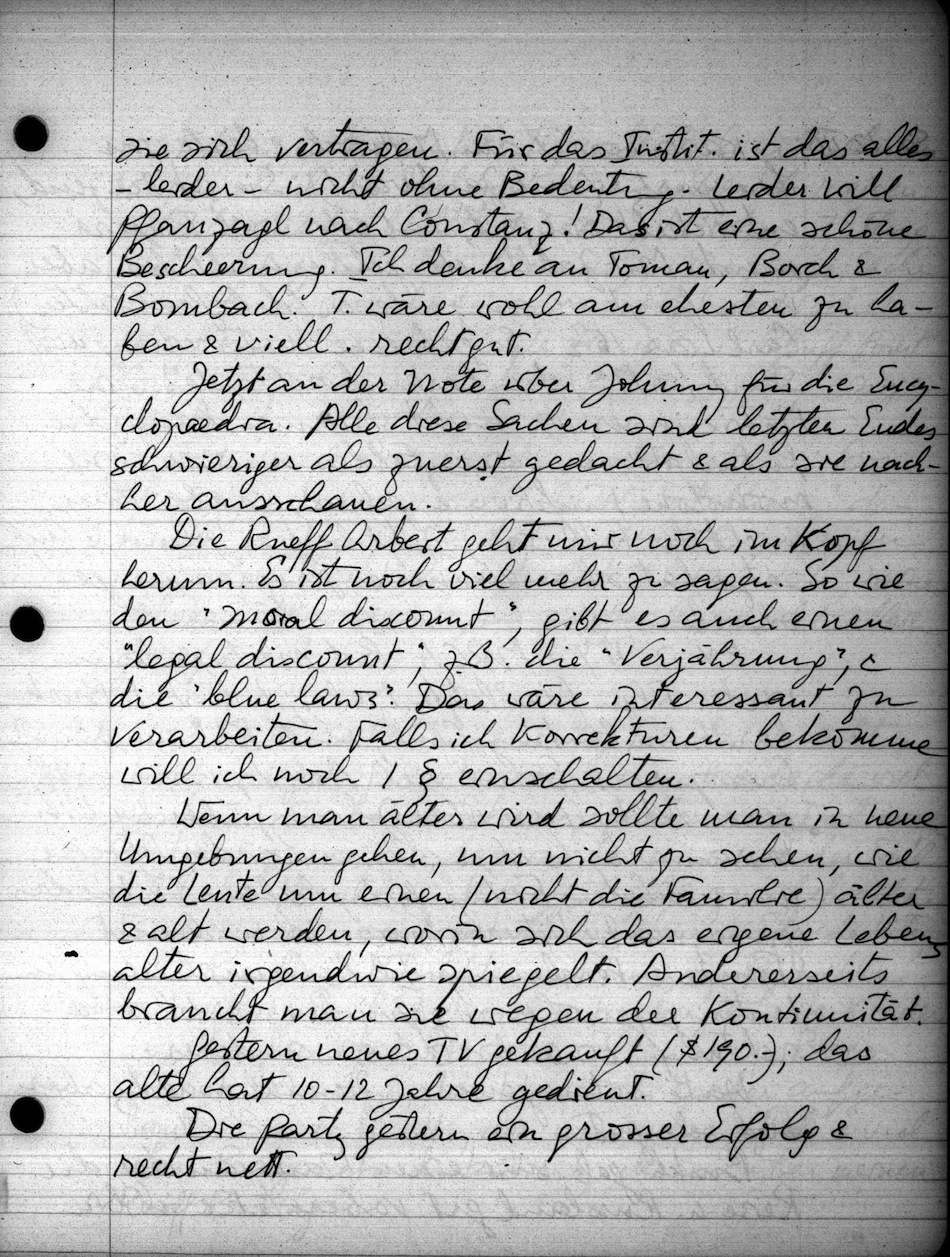 sie sich vertragen. Für das Instit. ist das alles
– leider – nicht ohne Bedeutung. Leider will
Pfanzagl nach Constanz! Das ist eine schöne
Bescheerung. Ich denke an Toman, Borch &
Bombach. T. wäre wohl am ehesten zu ha-
ben & viell. recht gut.
Jetzt an der Note über Johnny für die Ency-
clopaedia. Alle diese Sachen sind letzten Endes
schwieriger als zuerst gedacht & als sie nach-
her ausschauen.
Die Rueff Arbeit geht mir noch im Kopf
herum. Es ist noch viel mehr zu sagen. So wie
den "moral discount", gibt es auch einen
"legal discount", z.B. die "Verjährung",
die "blue laws". Das wäre interessant zu
verarbeiten. Falls ich Korrekturen bekomme
will ich noch 1 § einschalten.
Wenn man älter wird sollte man in neue
Umgebungen gehen, um nicht zu sehen, wie
die Leute um einen (nicht die Familie) älter
& alt werden, worin sich das eigene Lebens
alter irgendwie spiegelt. Andererseits
braucht man sie wegen der Kontinuität.
Gestern neues TV gekauft ($190.-); das
alte hat 10-12 Jahre gedient.
Die Party gestern ein grosser Erfolg &
recht nett.